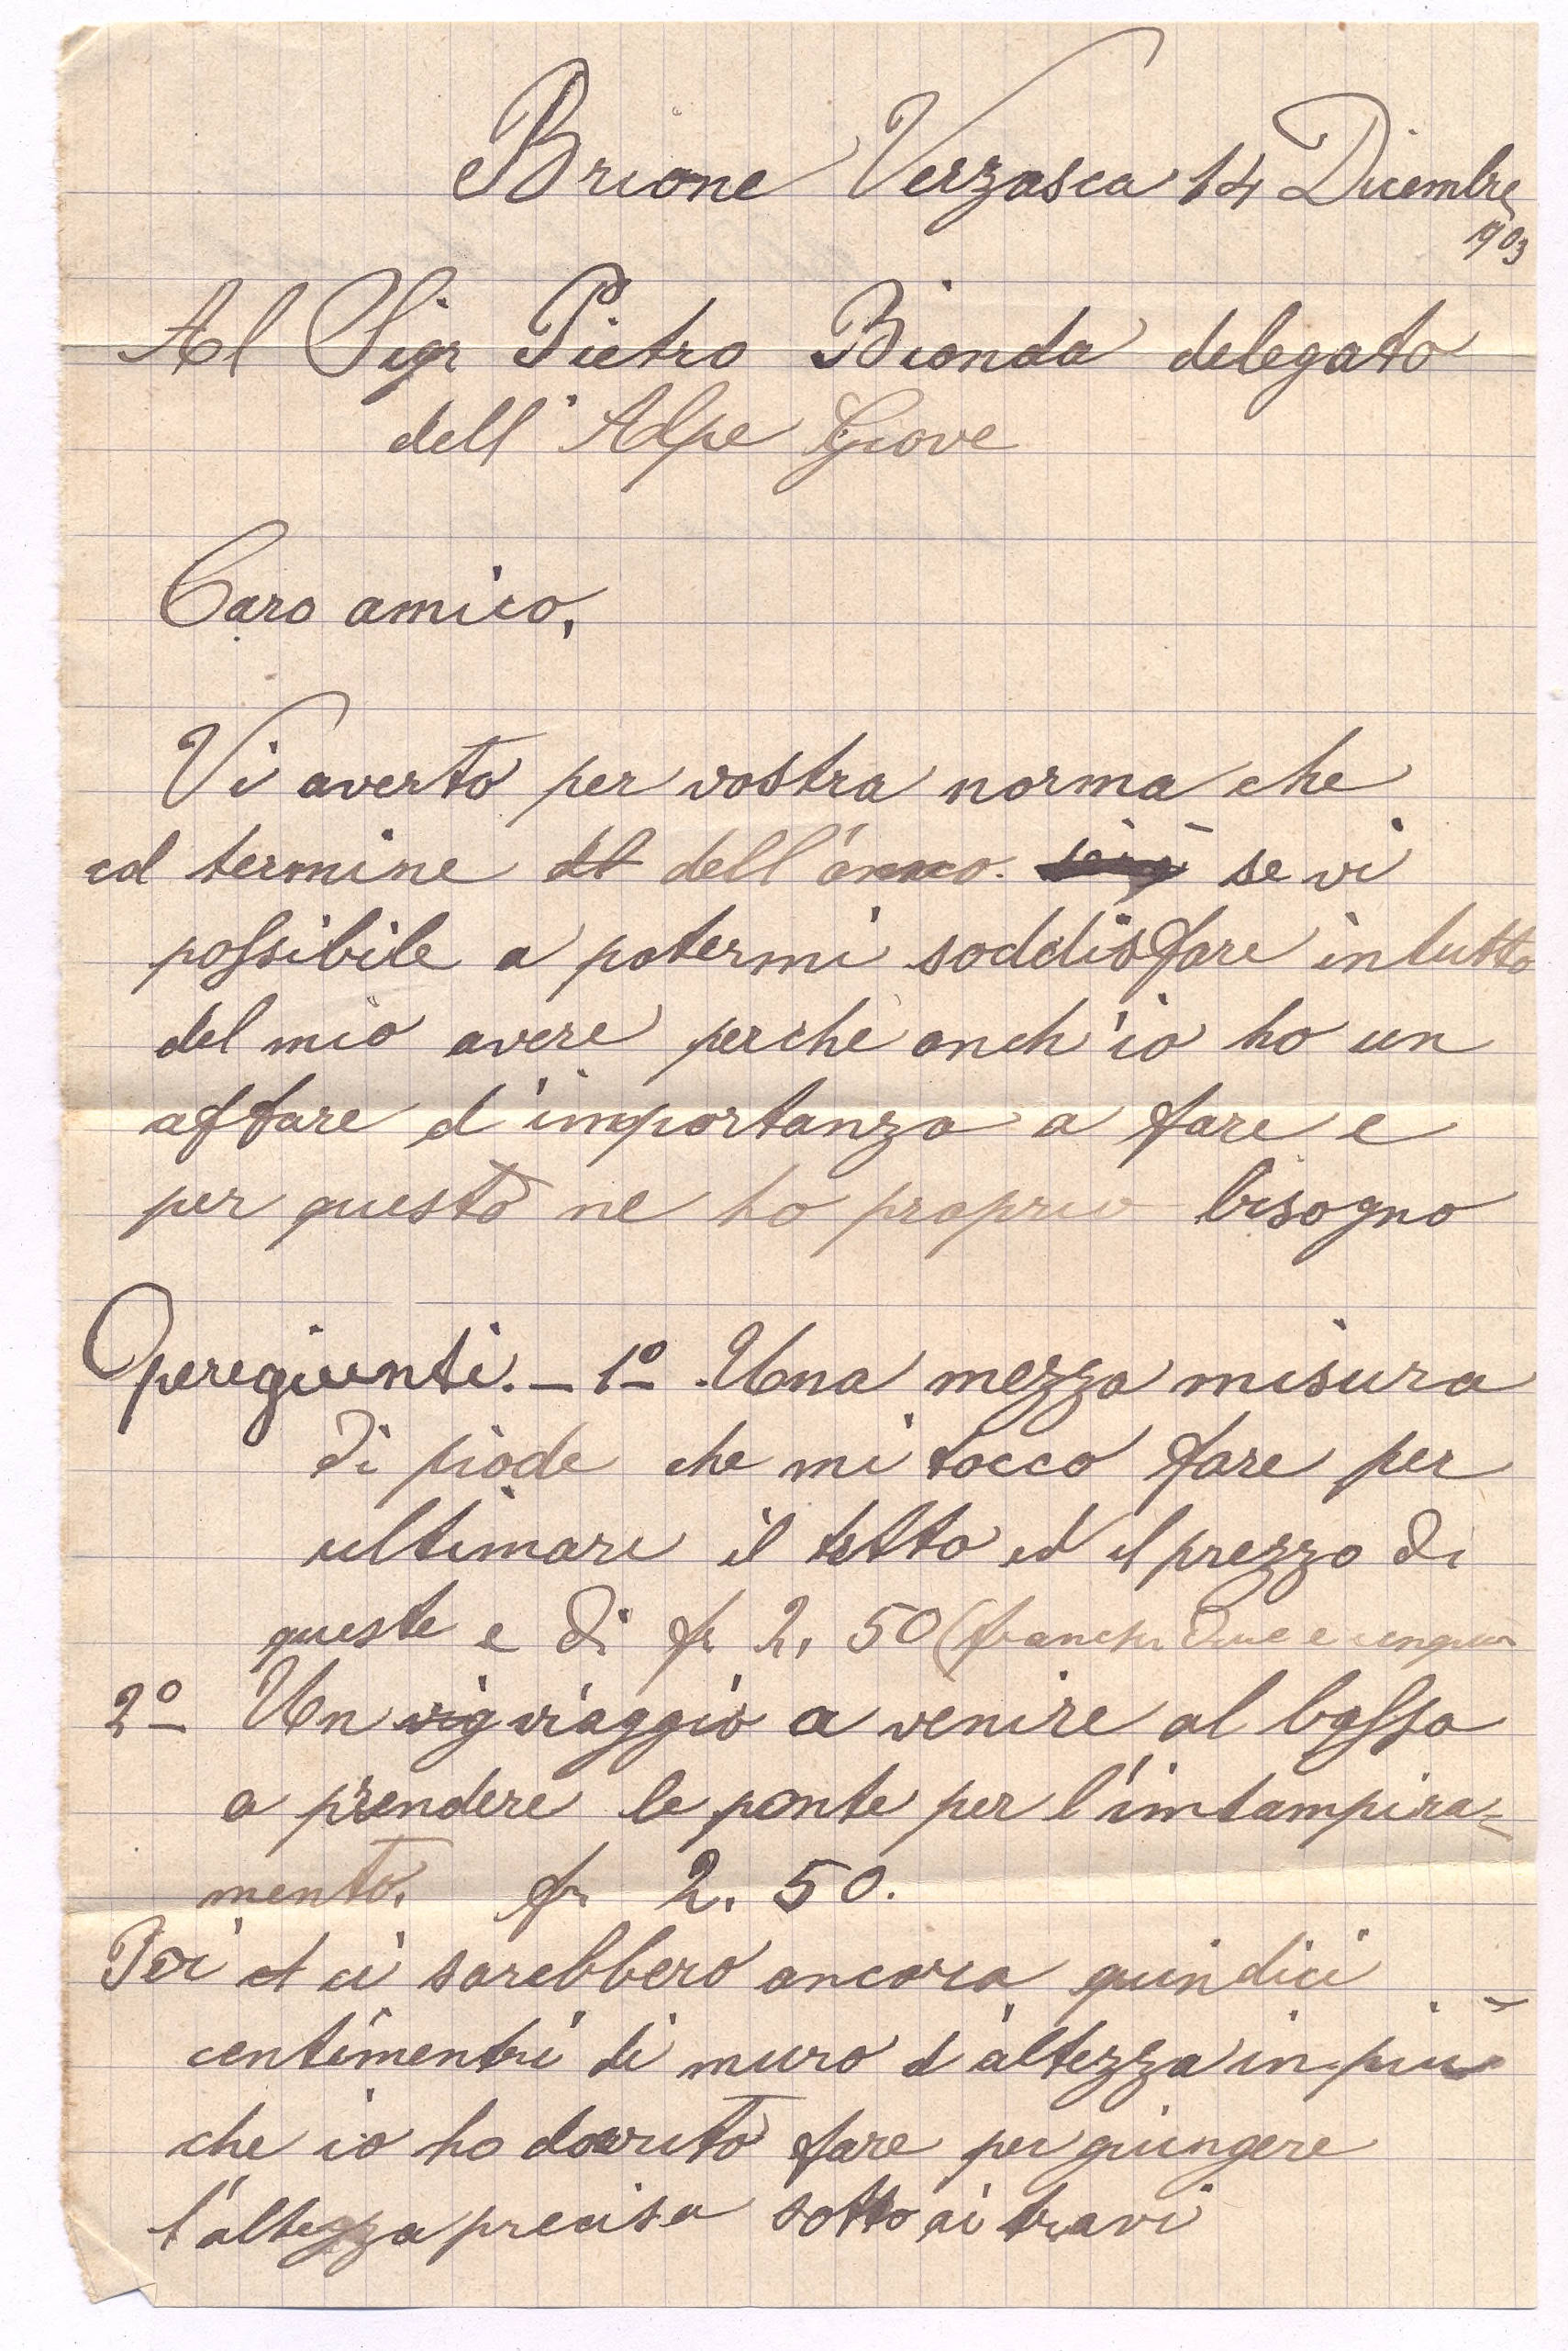 Brione Verzasca 14 Dicembre
1903
Al Sigr Pietro Bionda delegato
dell'Alpe Giove
Caro amico,
Vi averto per vostra norma che
al termine dl dell'anno. se vi
possibile a potermi soddisfare in tutto
del mio avere perche anch'io ho un
affare d'importanza a fare e
per questo ne ho proprio bisogno
Operegiunti. – 1º Una mezza misura
di piode che mi tocco fare per
ultimare il tetto ed il prezzo di
queste e di fr 2, 50 (franchi due e cinqua
2º Un vig viaggio a venire al basso
a prendere le ponte per l'intampira=
mento. fr 2. 50.
Poi ci sarebbero ancora quindici
centimentri di muro d'altezza in più
che io ho dovuto fare per giungere
l'altezza precisa sotto ai travi